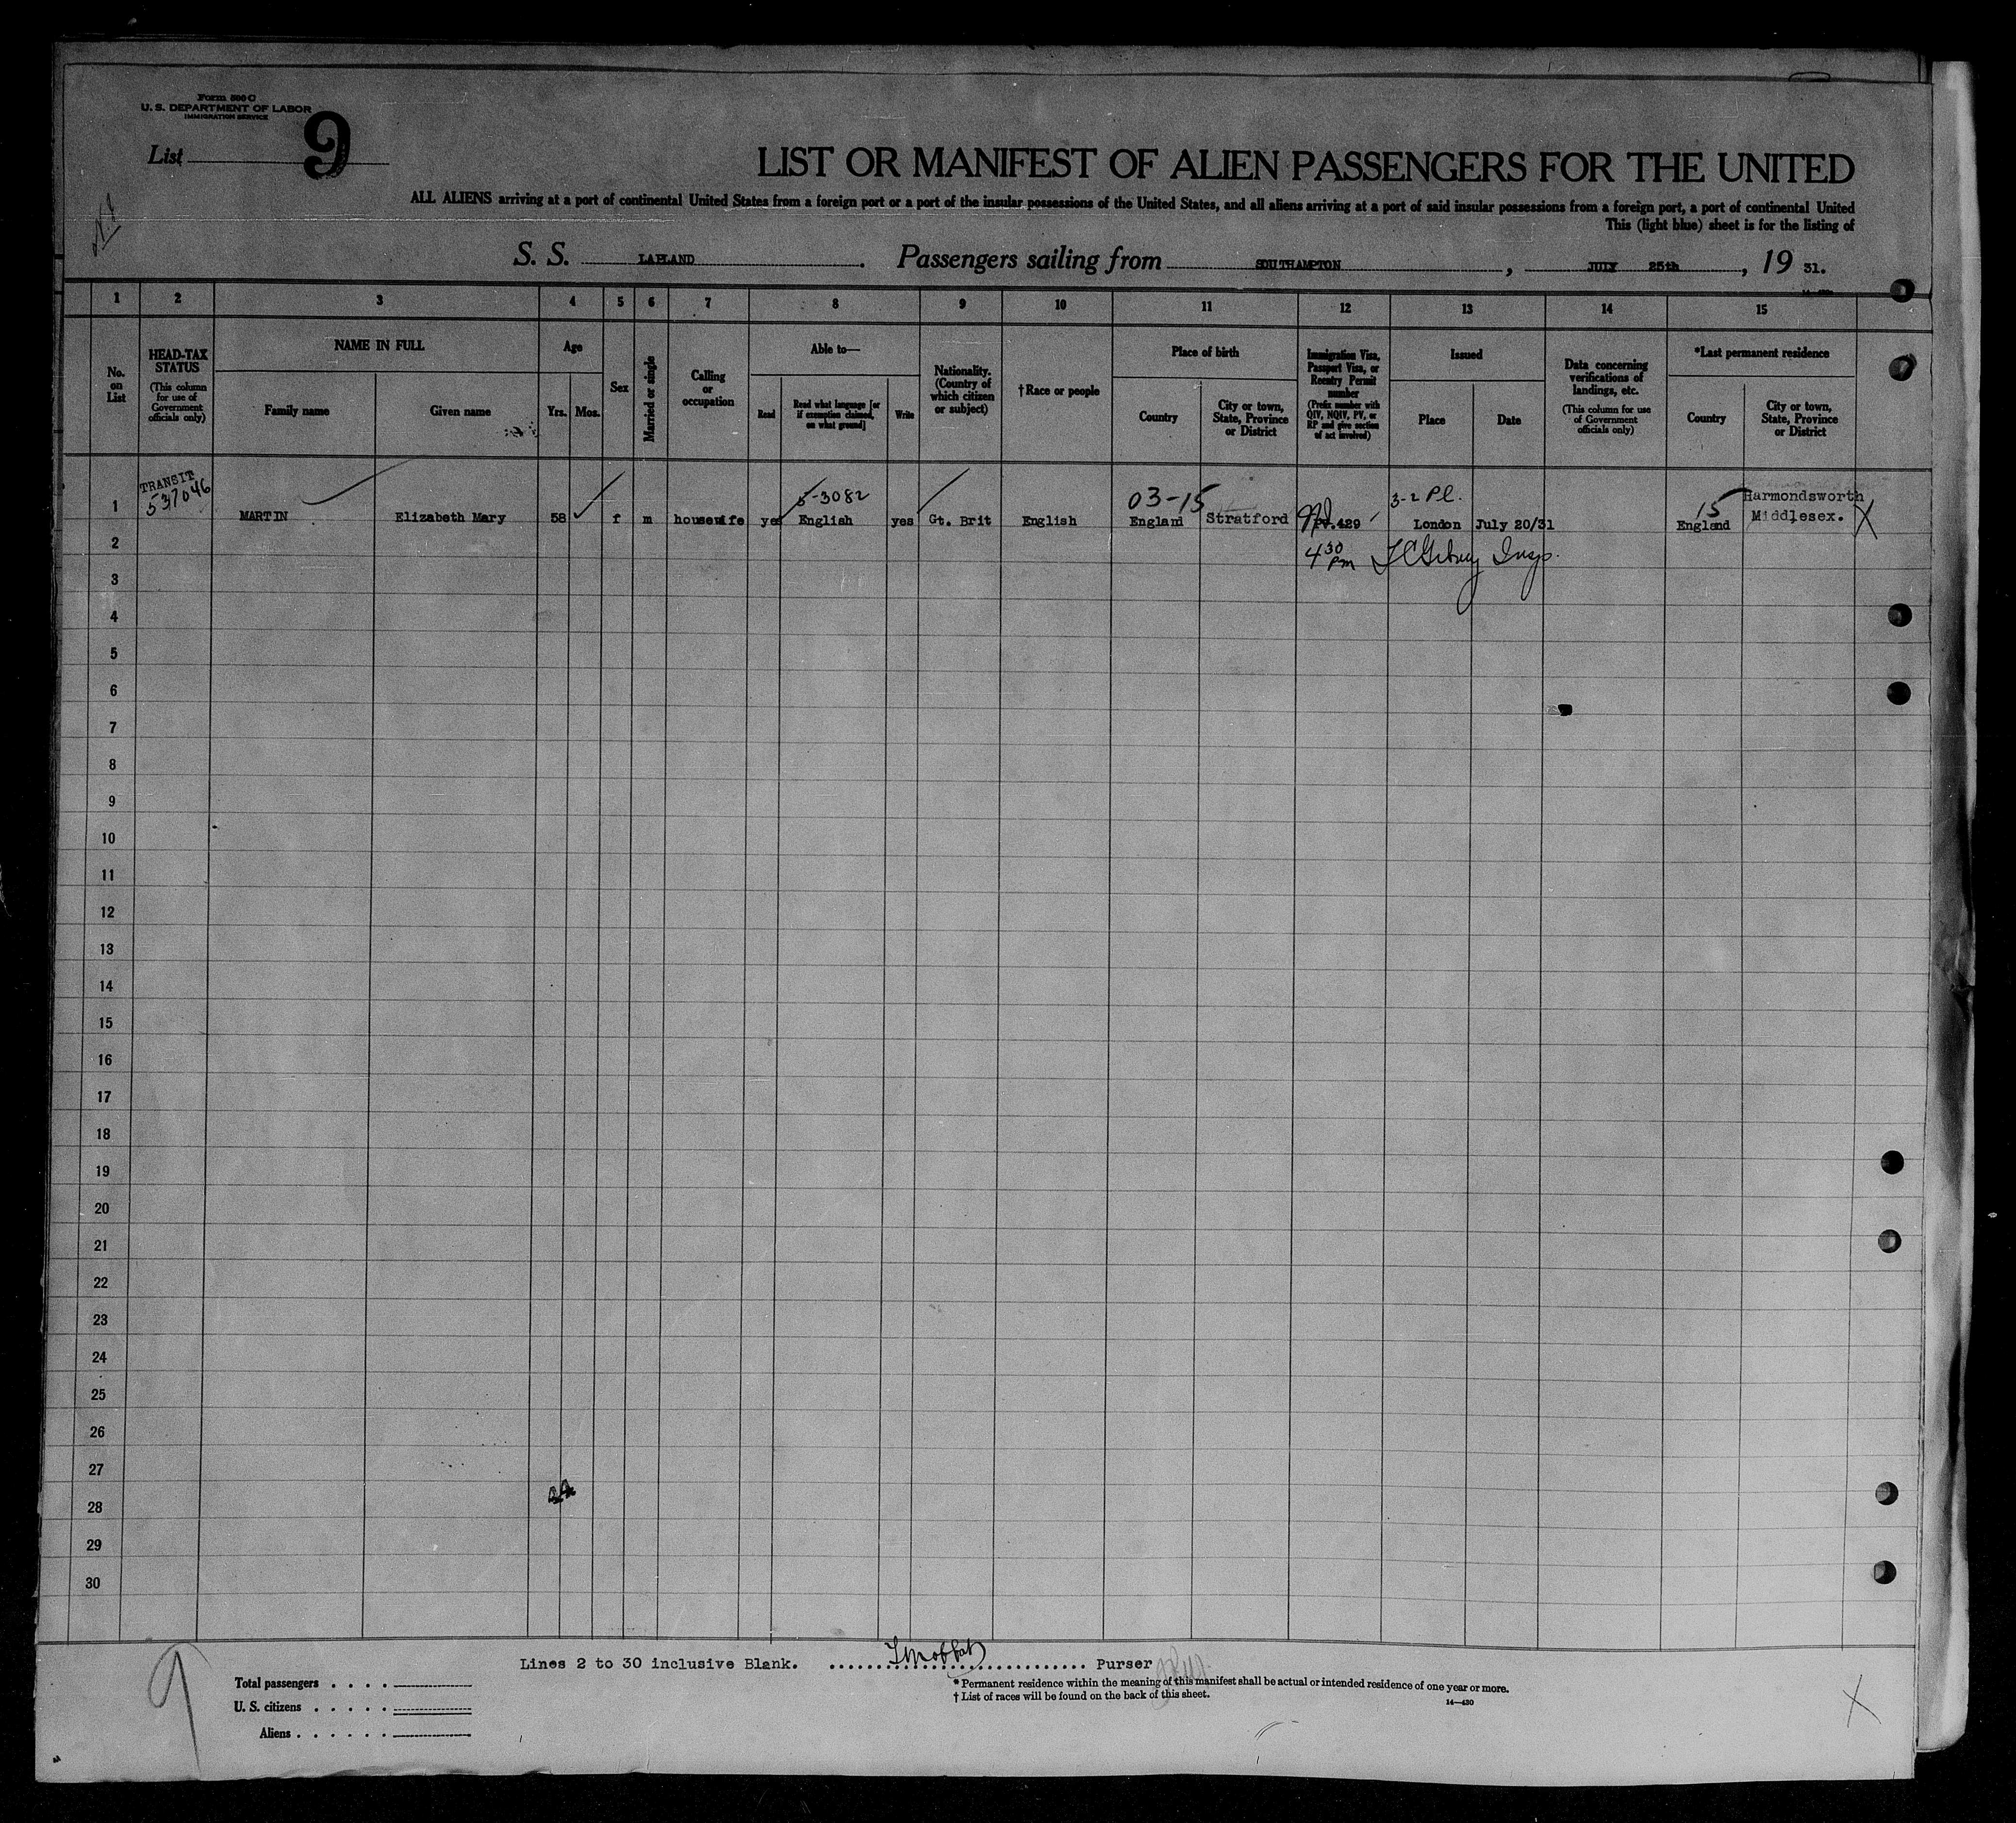 Form 500 C
U. S. DEPARTMENT OF LABOR
IMMIGRATION SERVICE
List 9
LIST OR MANIFEST OF ALIEN PASSENGERS FOR THE UNITED
ALL ALIENS arriving at a port of continental United States from a foreign port or a port of the insular possessions of the United States, and all aliens arriving at a port of said insular possessions from a foreign port, a port of continental United
This (light blue) sheet is for the listing of
S. S. LAPLAND. Passengers sailing from SOUTHAMPTON, JULY 25th, 19 31.
1 2 3 4 5 6 7 8 9 10 11 12 13 14 15
No. on List
HEAD-TAX STATUS
(This column for use of Government officials only)
NAME IN FULL
Family name
Given name
Age
Yrs.
Mos.
Sex
Married or single
Calling or occupation
Able to—
Read
Read what language [or if exemption claimed, on what ground]
Write
Nationality. (Country of which citizen or subject)
† Race or people
Place of birth
Country
City or town, State, Province or District
Immigration Visa, Passport Visa, or Reentry Permit number
(Prefix number with QIV, NQIV, PV, or RP and give section of act involved)
Issued
Place
Date
Data concerning verifications of landings, etc.
(This column for use of Government officials only)
*Last permanent residence
Country
City or town, State, Province or District
TRANSIT
537046
5-3082
03-15
3-2 Pl.
15
Harmondsworth
1 MARTIN Elizabeth Mary 58 f m housewife yes English yes Gt. Brit English England Stratford 429 London July 20/31 England Middlesex. X
2
4 30 pm
Insp.
3
4
5
6
7
8
9
10
11
12
13
14
15
16
17
18
19
20
21
22
23
24
25
26
27
28
29
30
Lines 2 to 30 inclusive Blank. Purser
9
Total passengers
U. S. citizens
Aliens
* Permanent residence within the meaning of this manifest shall be actual or intended residence of one year or more.
† List of races will be found on the back of this sheet.
14—430
X